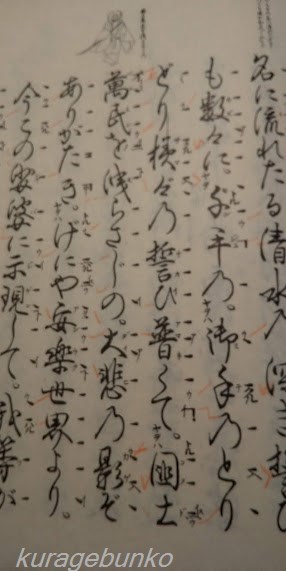 名に流れたる清水の。深き誓ひ
も数々に。千手の。御手のとり
どり様々の誓ひ普くて。国土
萬民を洩らさじの。大悲の影ぞ
ありがたき。げにや安楽世界より。
今この娑婆に示現して。我等が
kuragebunko